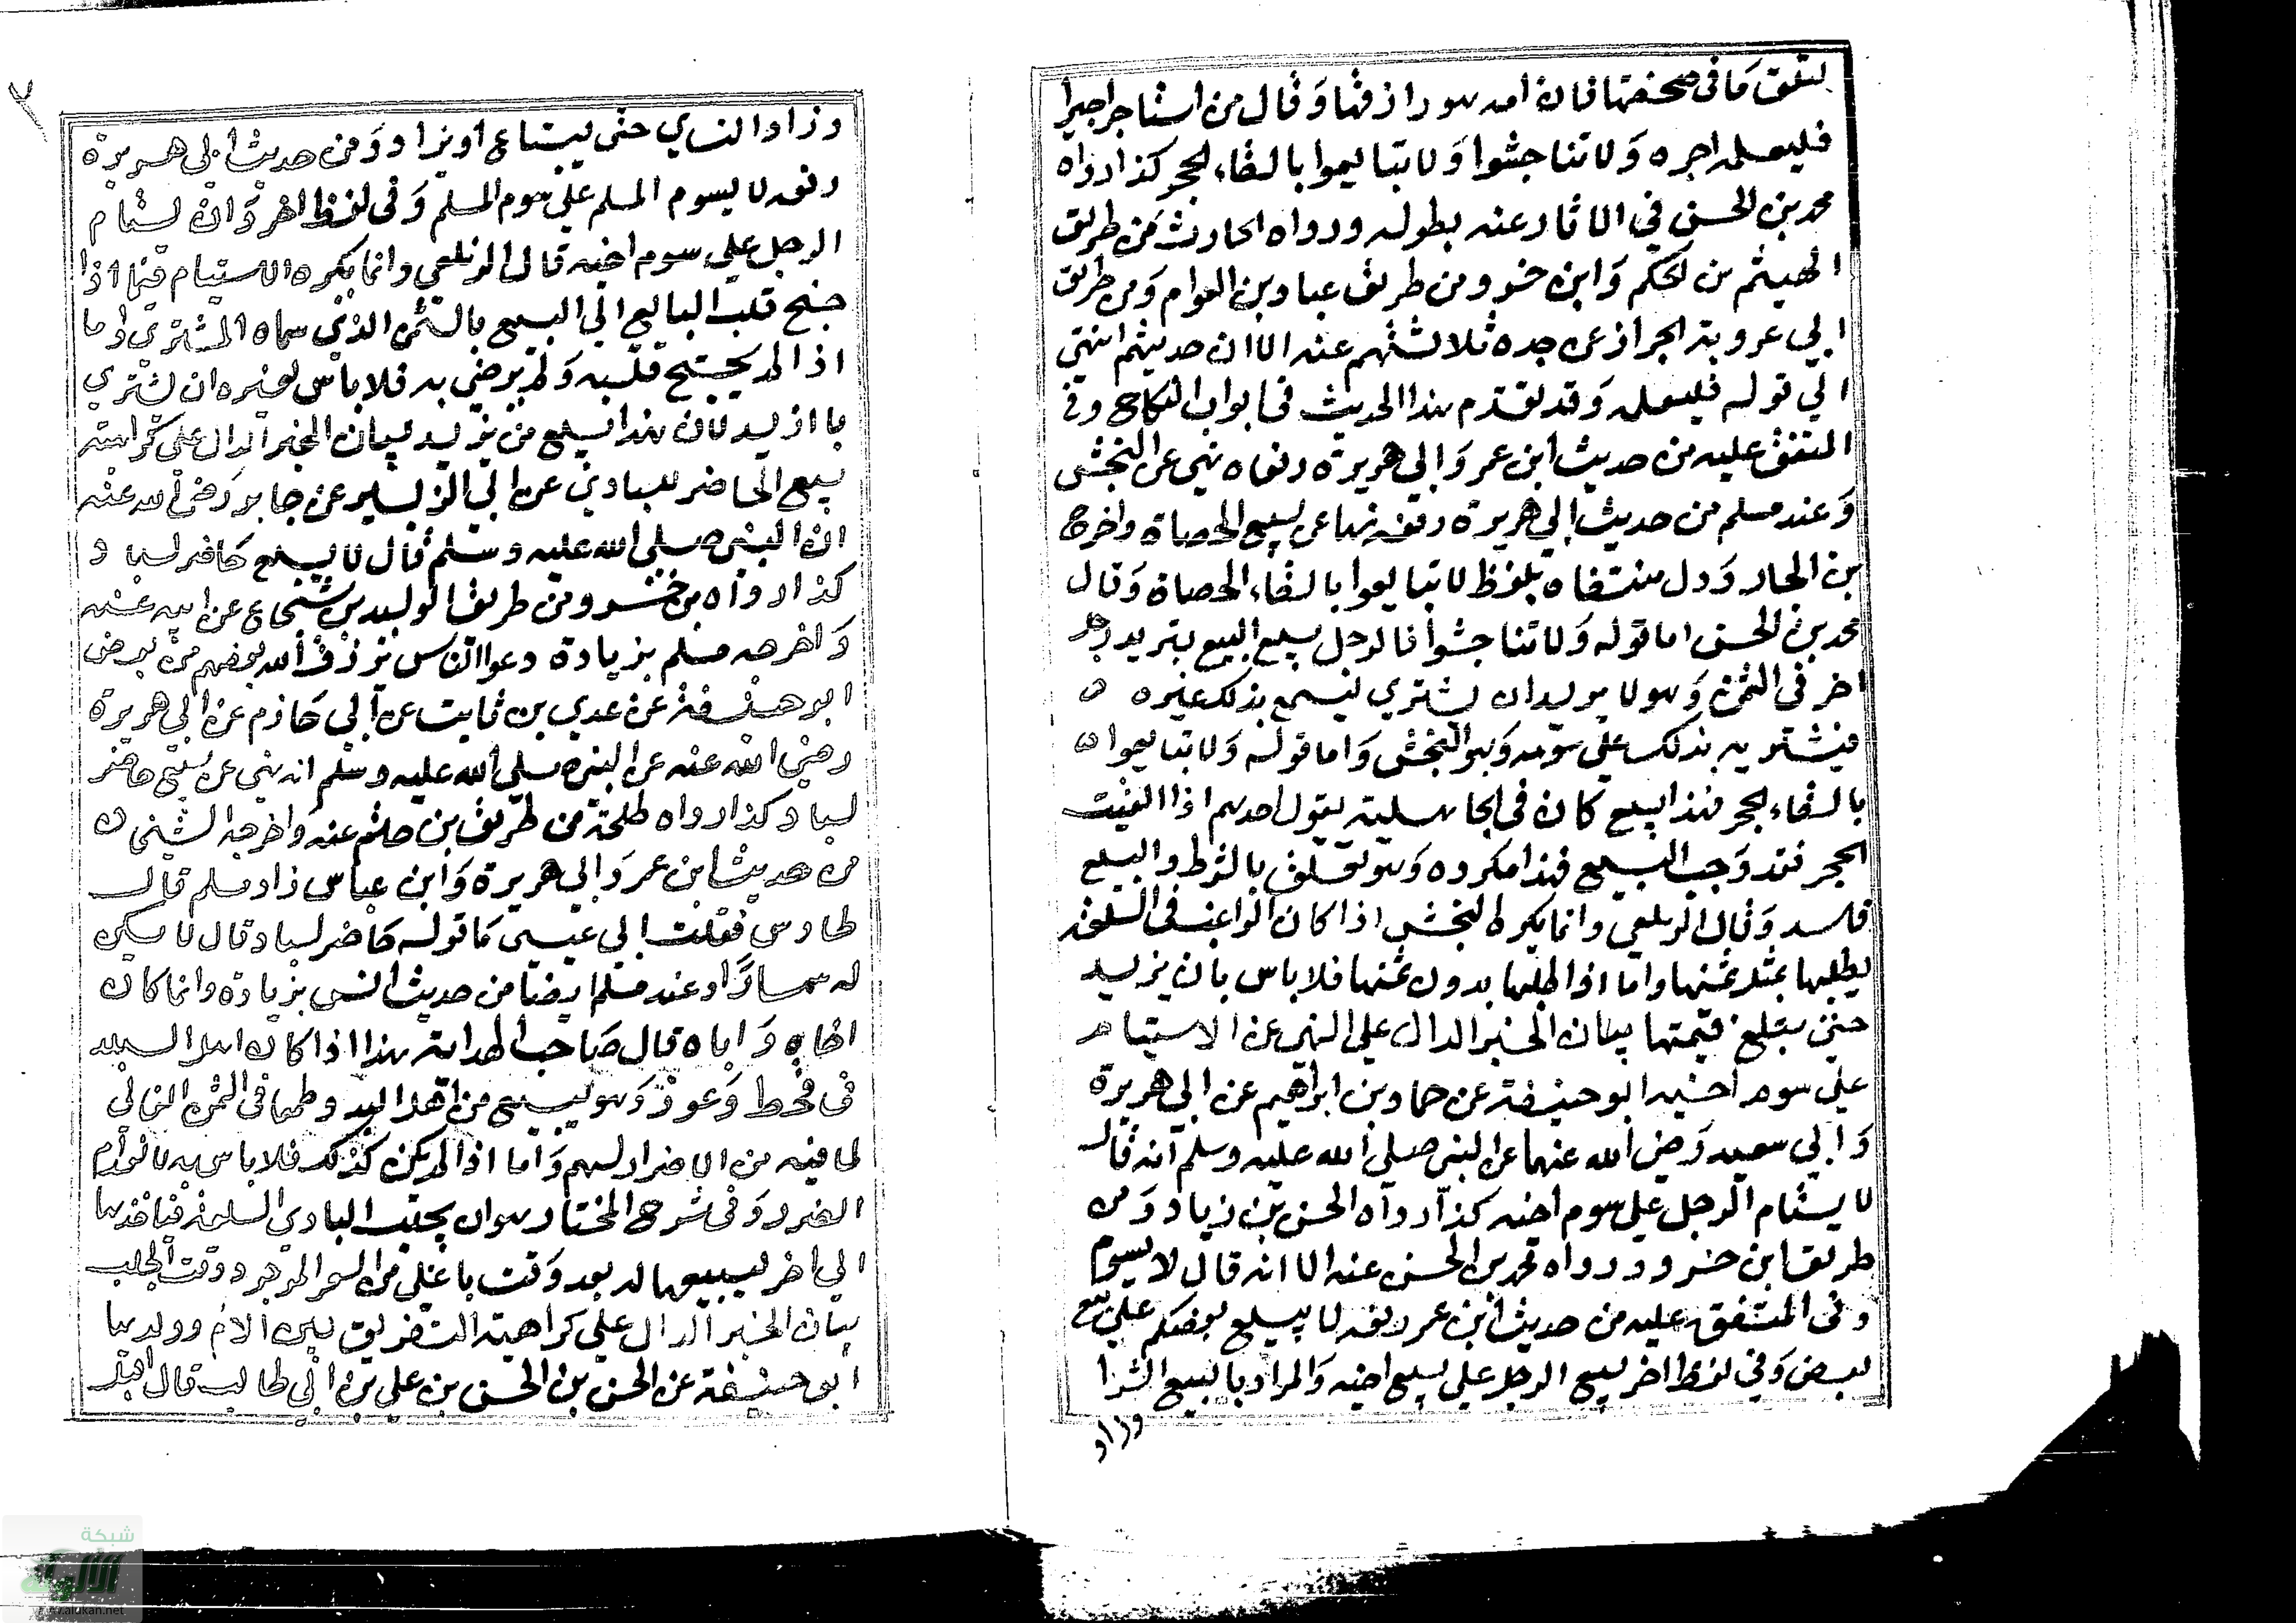 لتلق ما فى صحفتها فان الله هو رازقها وقال من استاجر اجيرا
فليعلمه اجره ولا تناجشوا ولا تبايعوا بالقاء الحجر كذا رواه
محمد بن الحسن في الاثار عنه بطوله ورواه الحارث من طريق
الهيثم بن الحكم وابن خسرو من طريق عباد بن العوام ومن طريق
ابي عروبة الحراز عن جده ثلاثتهم عنه الا ان حديثهم انتهى
الي قوله فليعلمه وقد تقدم هذا الحديث فى ابواب النكاح وفى
المتفق عليه من حديث ابن عمر وابي هريرة رفعاه نهى عن النجش
وعند مسلم من حديث ابي هريرة رفعه نها عن بيع الحصاة واخرج
بن الجارود ل منتقاه بلفظ لا تبايعوا بالقاء الحصاة وقال
محمد بن الحسن اما قوله ولا تناجشوا فالرجل يبيع البيع يتريد رجل
اخر فى الثمن وهو لا يريد ان يشتري ليسمع بذلك غيره ه
فيشتريه بذلك علي سومه وهو النجش واما قوله ولا تبايعوا ه
بالقاء الحجر فهذا بيع كان فى الجاهلية يقول احدهم اذا القيت
الحجر فقد وجب البيع فهذا مكروه وهو تعلق بالشرط والبيع
فاسد وقال الزيلعي وانما يكره النجش اذا كان الراغب فى السلعة
يطلبها بمثل ثمنها واما اذا طلبها بدون ثمنها فلا باس بان يزيد
حتى تبلغ قيمتها بيان الخبر الدال علي النهى عن الاستيام
علي سوم اخيه ابو حنيفة عن حماد بن ابراهيم عن ابي هريرة
وابي سعيد رضي الله عنهما عن النبى صلي الله عليه وسلم انه قال
لا يستام الرجل علي سوم اخيه كذا رواه الحسن بن زياد ومن
طريق ابن خسرو ورواه محمد بن الحسن عنه الا انه قال لا يسوم
وفى المتفق عليه من حديث ابن عمر رفعه لا يبيع بعضكم علي بيع
بعض وفي لفظ اخر لا يبيع الرجل علي بيع اخيه والمراد بالبيع الشرا
وزاد
وزاد النساي حتى يبتاع او يزاد ومن حديث ابي هريرة
رفعه لا يسوم المسلم علي سوم المسلم وفى لفظ اخر وان يستام
الرجل علي سوم اخيه قال الزيلعي وانما يكره الاستيام فيما اذا
جنح قلب البايع الي البيع بالثمن الذي سماه المشتري اما
اذا لم يجنح قلبه ولم يرضي به فلا باس لغيره ان يشتري
با ازيد لان هذا بيع من يزيد بيان الخبر الدال علي كراهته
بيع الحاضر للبادي عن ابي الزبير عن جابر رضى الله عنه
ان النبى صلي الله عليه وسلم قال لا يبيع حاضر لباد
كذا رواه بن خسرو من طريق الوليد بن شجاع عن ابيه عنه
واخرجه مسلم بزيادة دعوا الناس يرزق الله بعضهم من بعض
ابو حنيفة عن عدي بن ثابت عن ابي حازم عن ابي هريرة
رضي الله عنه عن النبى صلي الله عليه وسلم انه نهى عن بيع حاضر
لباد كذا رواه طلحة من طريق بن عنه واخرجه الشيخان
من حديث ابن عمر وابي هريرة وابن عباس زاد مسلم قال
طاوس فقلت ابي عيسى ما قوله حاضر لباد قال لا يكن
له سمسارا وعند مسلم ايضا من حديث انس بزيادة وانما كان
اخاه واباه قال صاحب الهداية هذا اذا كان اهل البلد
فى قحط وعوز وهو يبيع من اهل البدو طمعا فى الثمن الغالي
لما فيه من الاضرار بهم واما اذا لم يكن كذلك فلا باس به لانعدام
الضرر وفى شرح المختار هو ان يجلب البادي السلعة فياخذها
الي اخر ليبيعها له بعد وقت باغلي من السعر الموجود وقت الجلب
بيان الخبر الدال علي كراهية التفريق بين الام وولدها
ابو حنيفة عن الحسن بن الحسن بن علي بن ابي طالب قال اقبل
شبكة
الألوكة
www.alukah.net